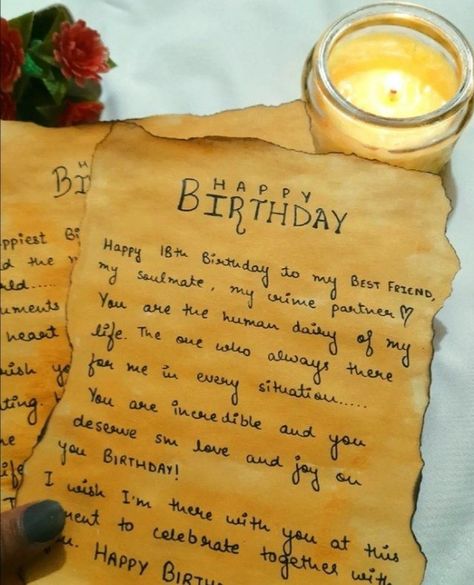 HAPPY
BIRTHDAY
Happy 18th Birthday to my BEST FRIEND,
my soulmate, my crime partner♡
You are the human dairy of my
life. The one who always there
for me in every situation.....
You are incredible and you
deserve sm love and joy on
you BIRTHDAY!
I wish I'm there with you at this
ment to celebrate together with
u. HAPPY BIRTH
H
BI
ppiest Bi
d the
ld.....
uments
heart
ish yo
ting
e
life